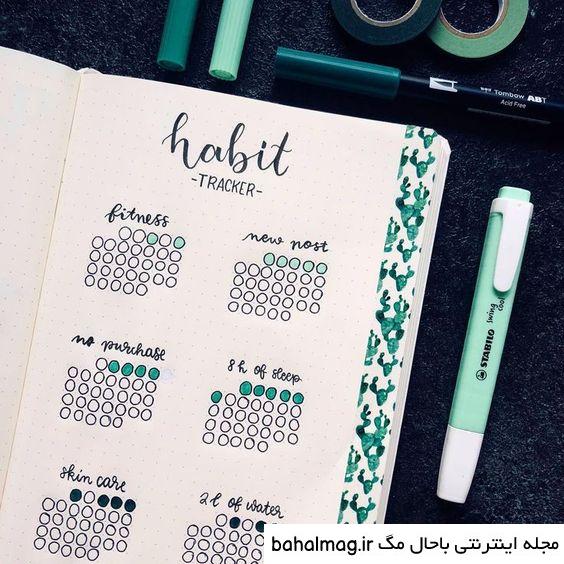 Tombow ABT
Acid Free
habit
-TRACKER-
fitness
new post
no purchase
8 h of sleep
skin care
2 l of water
STABILO swing cool
مجله اینترنتی باحال مگ bahalmag.ir